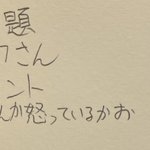 題
フさん
ント
んか怒っているかお